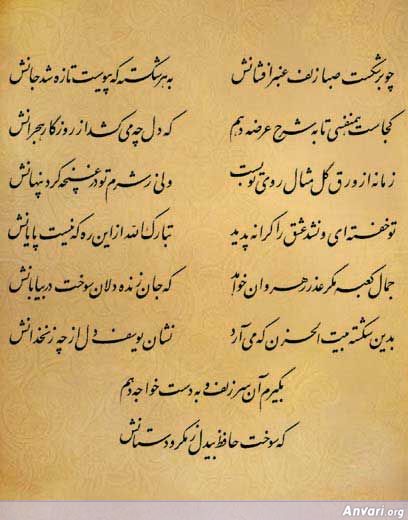 چو برشکست صبا زلف عنبرافشانش به هر شکسته که پیوست تازه شد جانش
کجاست همنفسی تا به شرح عرضه دهم که دل چه می‌کشد از روزگار هجرانش
زمانه از ورق گل مثال روی تو بست ولی ز شرم تو در غنچه کرد پنهانش
تو خفته‌ای و نشد عشق را کرانه پدید تبارک الله از این ره که نیست پایانش
جمال کعبه مگر عذر رهروان خواهد که جان زنده دلان سوخت در بیابانش
بدین شکسته بیت الحزن که می‌آرد نشان یوسف دل از چه زنخدانش
بگیرم آن سر زلف و به دست خواجه دهم
که سوخت حافظ بیدل ز مکر و دستانش
Anvari.org